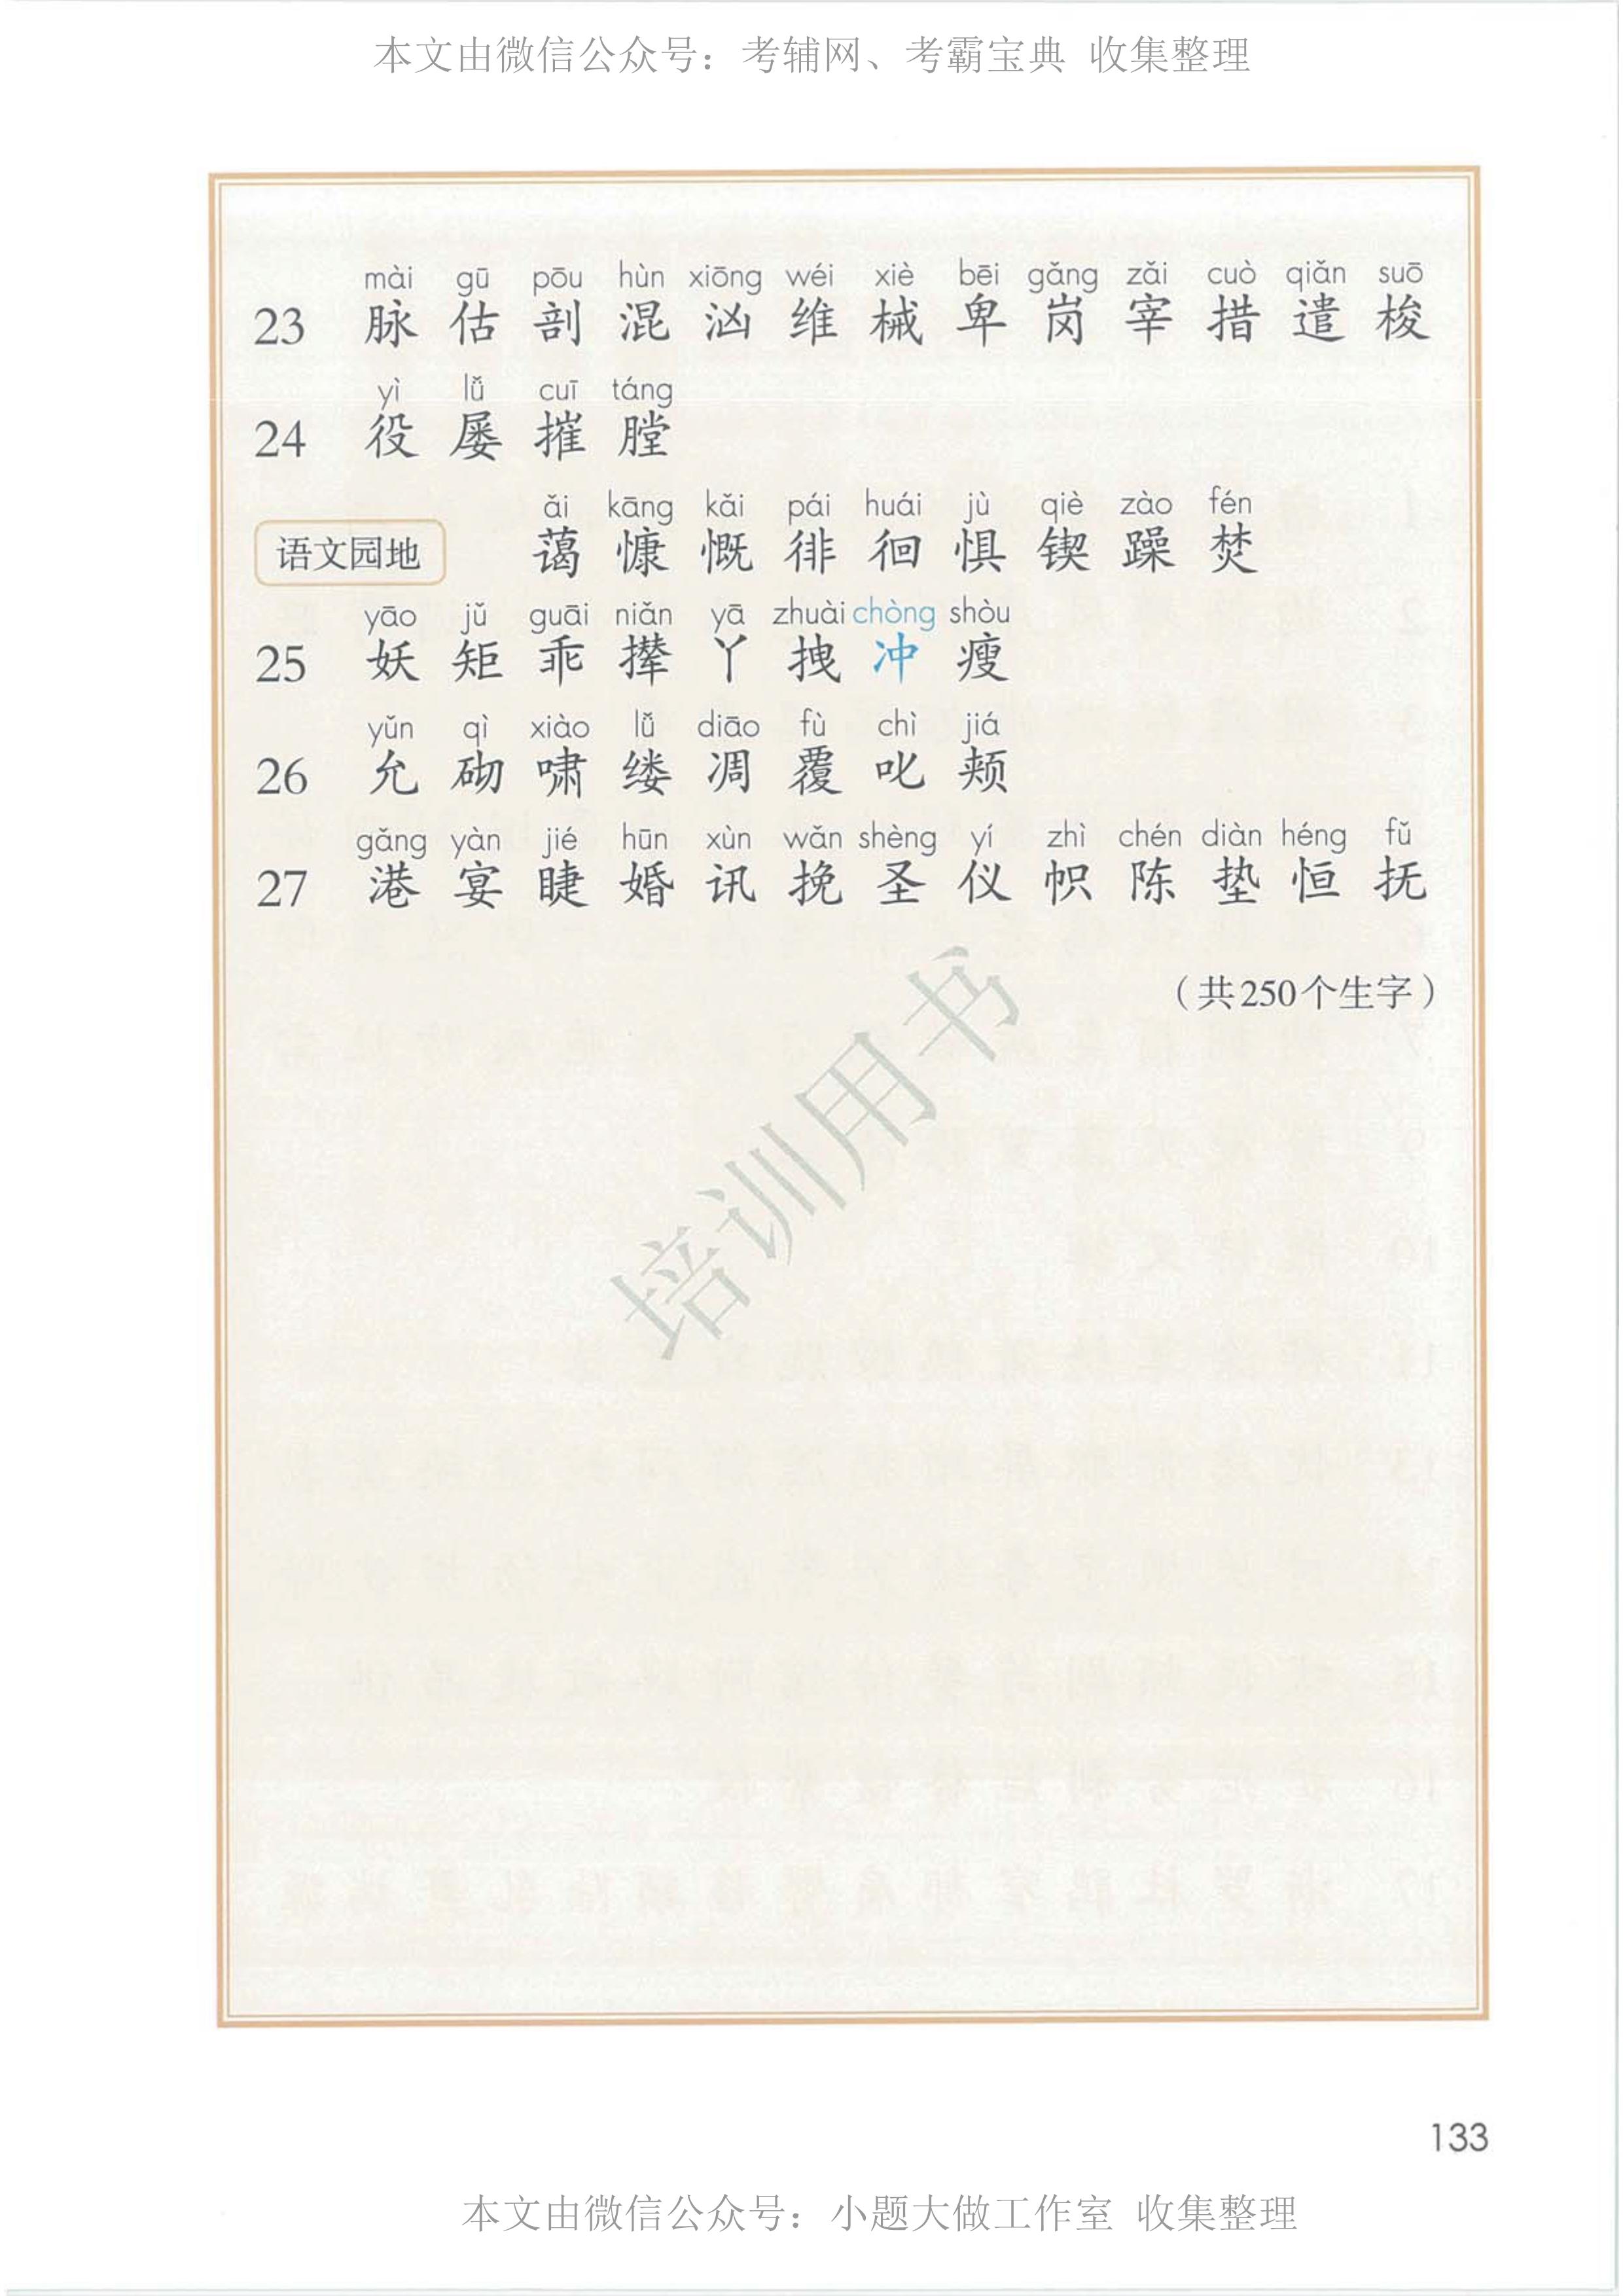 本文由微信公众号：考辅网、考霸宝典 收集整理
mài gū pōu hùn xiōng wéi xiè bēi gǎng zǎi cuò qiǎn suō
23 脉 估 剖 混 汹 维 械 卑 岗 宰 措 遣 梭
yì lǚ cuī táng
24 役 屡 摧 膛
ǎi kāng kǎi pái huái jù qiè zào fén
语文园地 蔼 慷 慨 徘 徊 惧 锲 躁 焚
yāo jǔ guāi niǎn yā zhuài chòng shòu
25 妖 矩 乖 撵 丫 拽 冲 瘦
yǔn qì xiào lǚ diāo fù chì jiá
26 允 砌 啸 缕 凋 覆 叱 颊
gǎng yàn jié hūn xùn wǎn shèng yí zhì chén diàn héng fǔ
27 港 宴 睫 婚 讯 挽 圣 仪 帜 陈 垫 恒 抚
（共250个生字）
培训用书
133
本文由微信公众号：小题大做工作室 收集整理